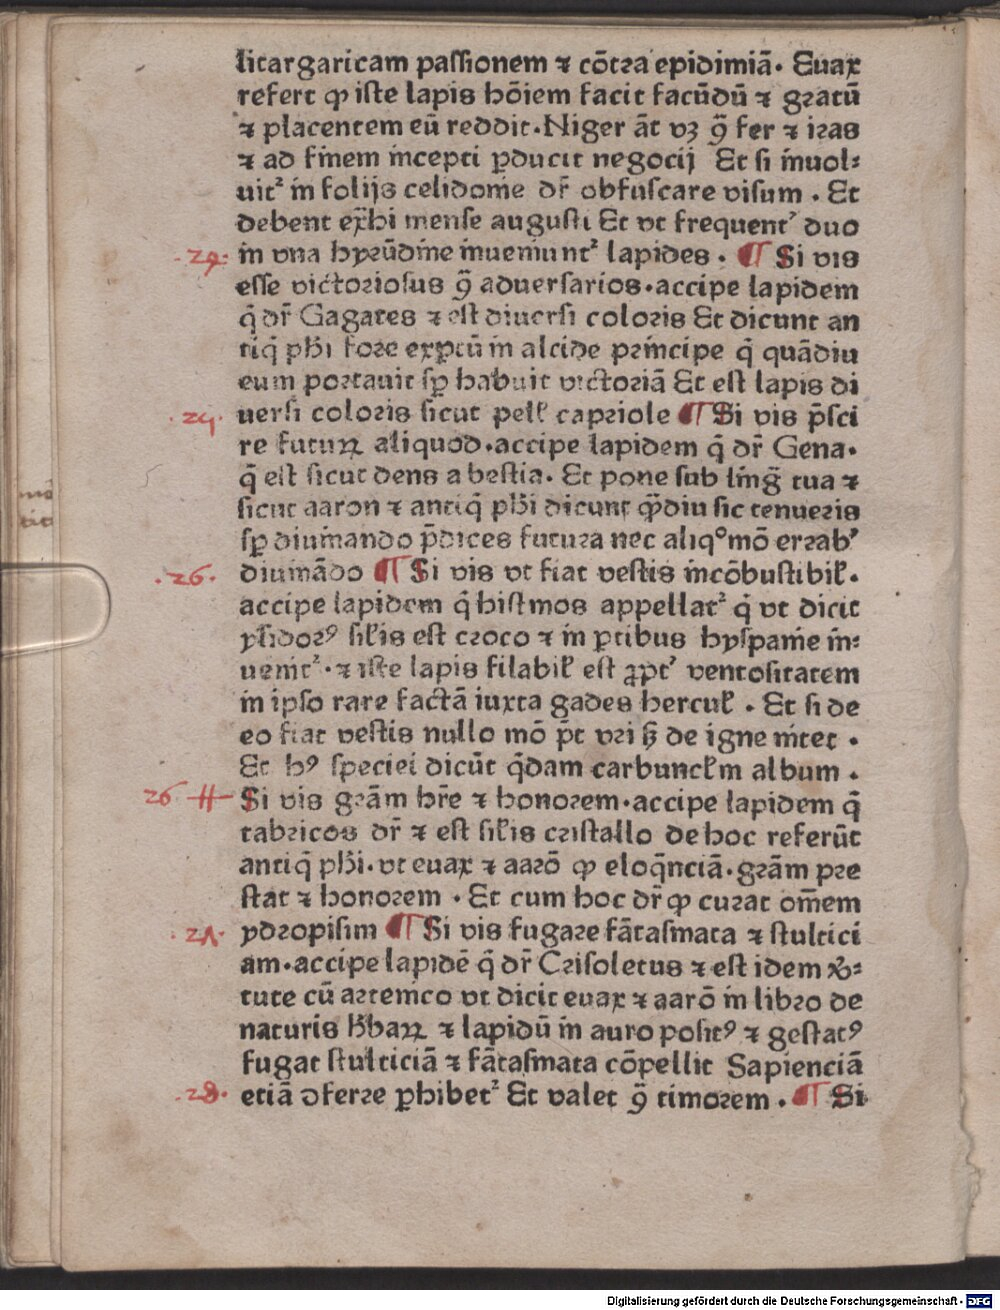 litargaricam passionem ⁊ cōtra epidimiā. Euax
refert ꝙ iste lapis hōiem facit facūdū ⁊ gratū
⁊ placentem eū reddit. Niger āt vꝫ ꝯ̄ fer ⁊ iras
⁊ ad finem incepti ꝑducit negocij Et si inuol⸗
uit᷑ in folijs celidonie dr̄ obfuscare visum. Et
debent ex̄hi mense augusti Et vt frequent᷑ duo
.24. in vna hyrūdine inueniunt᷑ lapides. ¶ Si vis
esse victoriosus ꝯ̄ aduersarios. accipe lapidem
q̄ dr̄ Gagates ⁊ est diuersi coloris Et dicunt an
tiq̄ ph̄i fore exꝑtū in alcide principe q̄ quādiu
eum portauit sꝑ habuit victoriā Et est lapis di
.25. uersi coloris sicut pell̄ capriole ¶ Si vis p̄sci
re futuꝝ aliquod. accipe lapidem q̄ dr̄ Gena.
q̄ est sicut dens a bestia. Et pone sub linḡ tua ⁊
sicut aaron ⁊ antiq̄ ph̄i dicunt ꝙ̄diu sic tenueris
sꝑ diuinando p̄dices futura nec aliq°mō errab᷑
.26. diuinādo ¶ Si vis vt fiat vestis incōbustibil̄.
accipe lapidem q̄ histmos appellat᷑ q̄ vt dicit
ysidorꝰ sil̄is est croco ⁊ in ꝑtibus hyspanie in⸗
uenit᷑. ⁊ iste lapis filabil̄ est ꝓpt᷑ ventositatem
in ipso rare factā iuxta gades hercul̄. Et si de
eo fiat vestis nullo mō p̄t vri sꝫ de igne nitet.
Et hꝰ speciei dicūt q̄dam carbuncl̄m album.
26 # Si vis grām hr̄e ⁊ honorem. accipe lapidem q̄
tabricos dr̄ ⁊ est sil̄is cristallo de hoc referūt
antiq̄ ph̄i. vt euax ⁊ aarō ꝙ eloq̄nciā. grām pre
stat ⁊ honorem. Et cum hoc dr̄ ꝙ curat om̄em
.27. ydropisim ¶ Si vis fugare fātasmata ⁊ stultici
am. accipe lapidē q̄ dr̄ Crisoletus ⁊ est idem v̄⸗
tute cū artemico vt dicit euax ⁊ aarō in libro de
naturis h̄baꝝ ⁊ lapidū in auro positꝰ ⁊ gestatꝰ
fugat stulticiā ⁊ fātasmata cōpellit Sapienciā
.28. etiā ꝯferre ꝑhibet᷑ Et valet ꝯ̄ timorem. ¶ Si
Digitalisierung gefördert durch die Deutsche Forschungsgemeinschaft - DFG